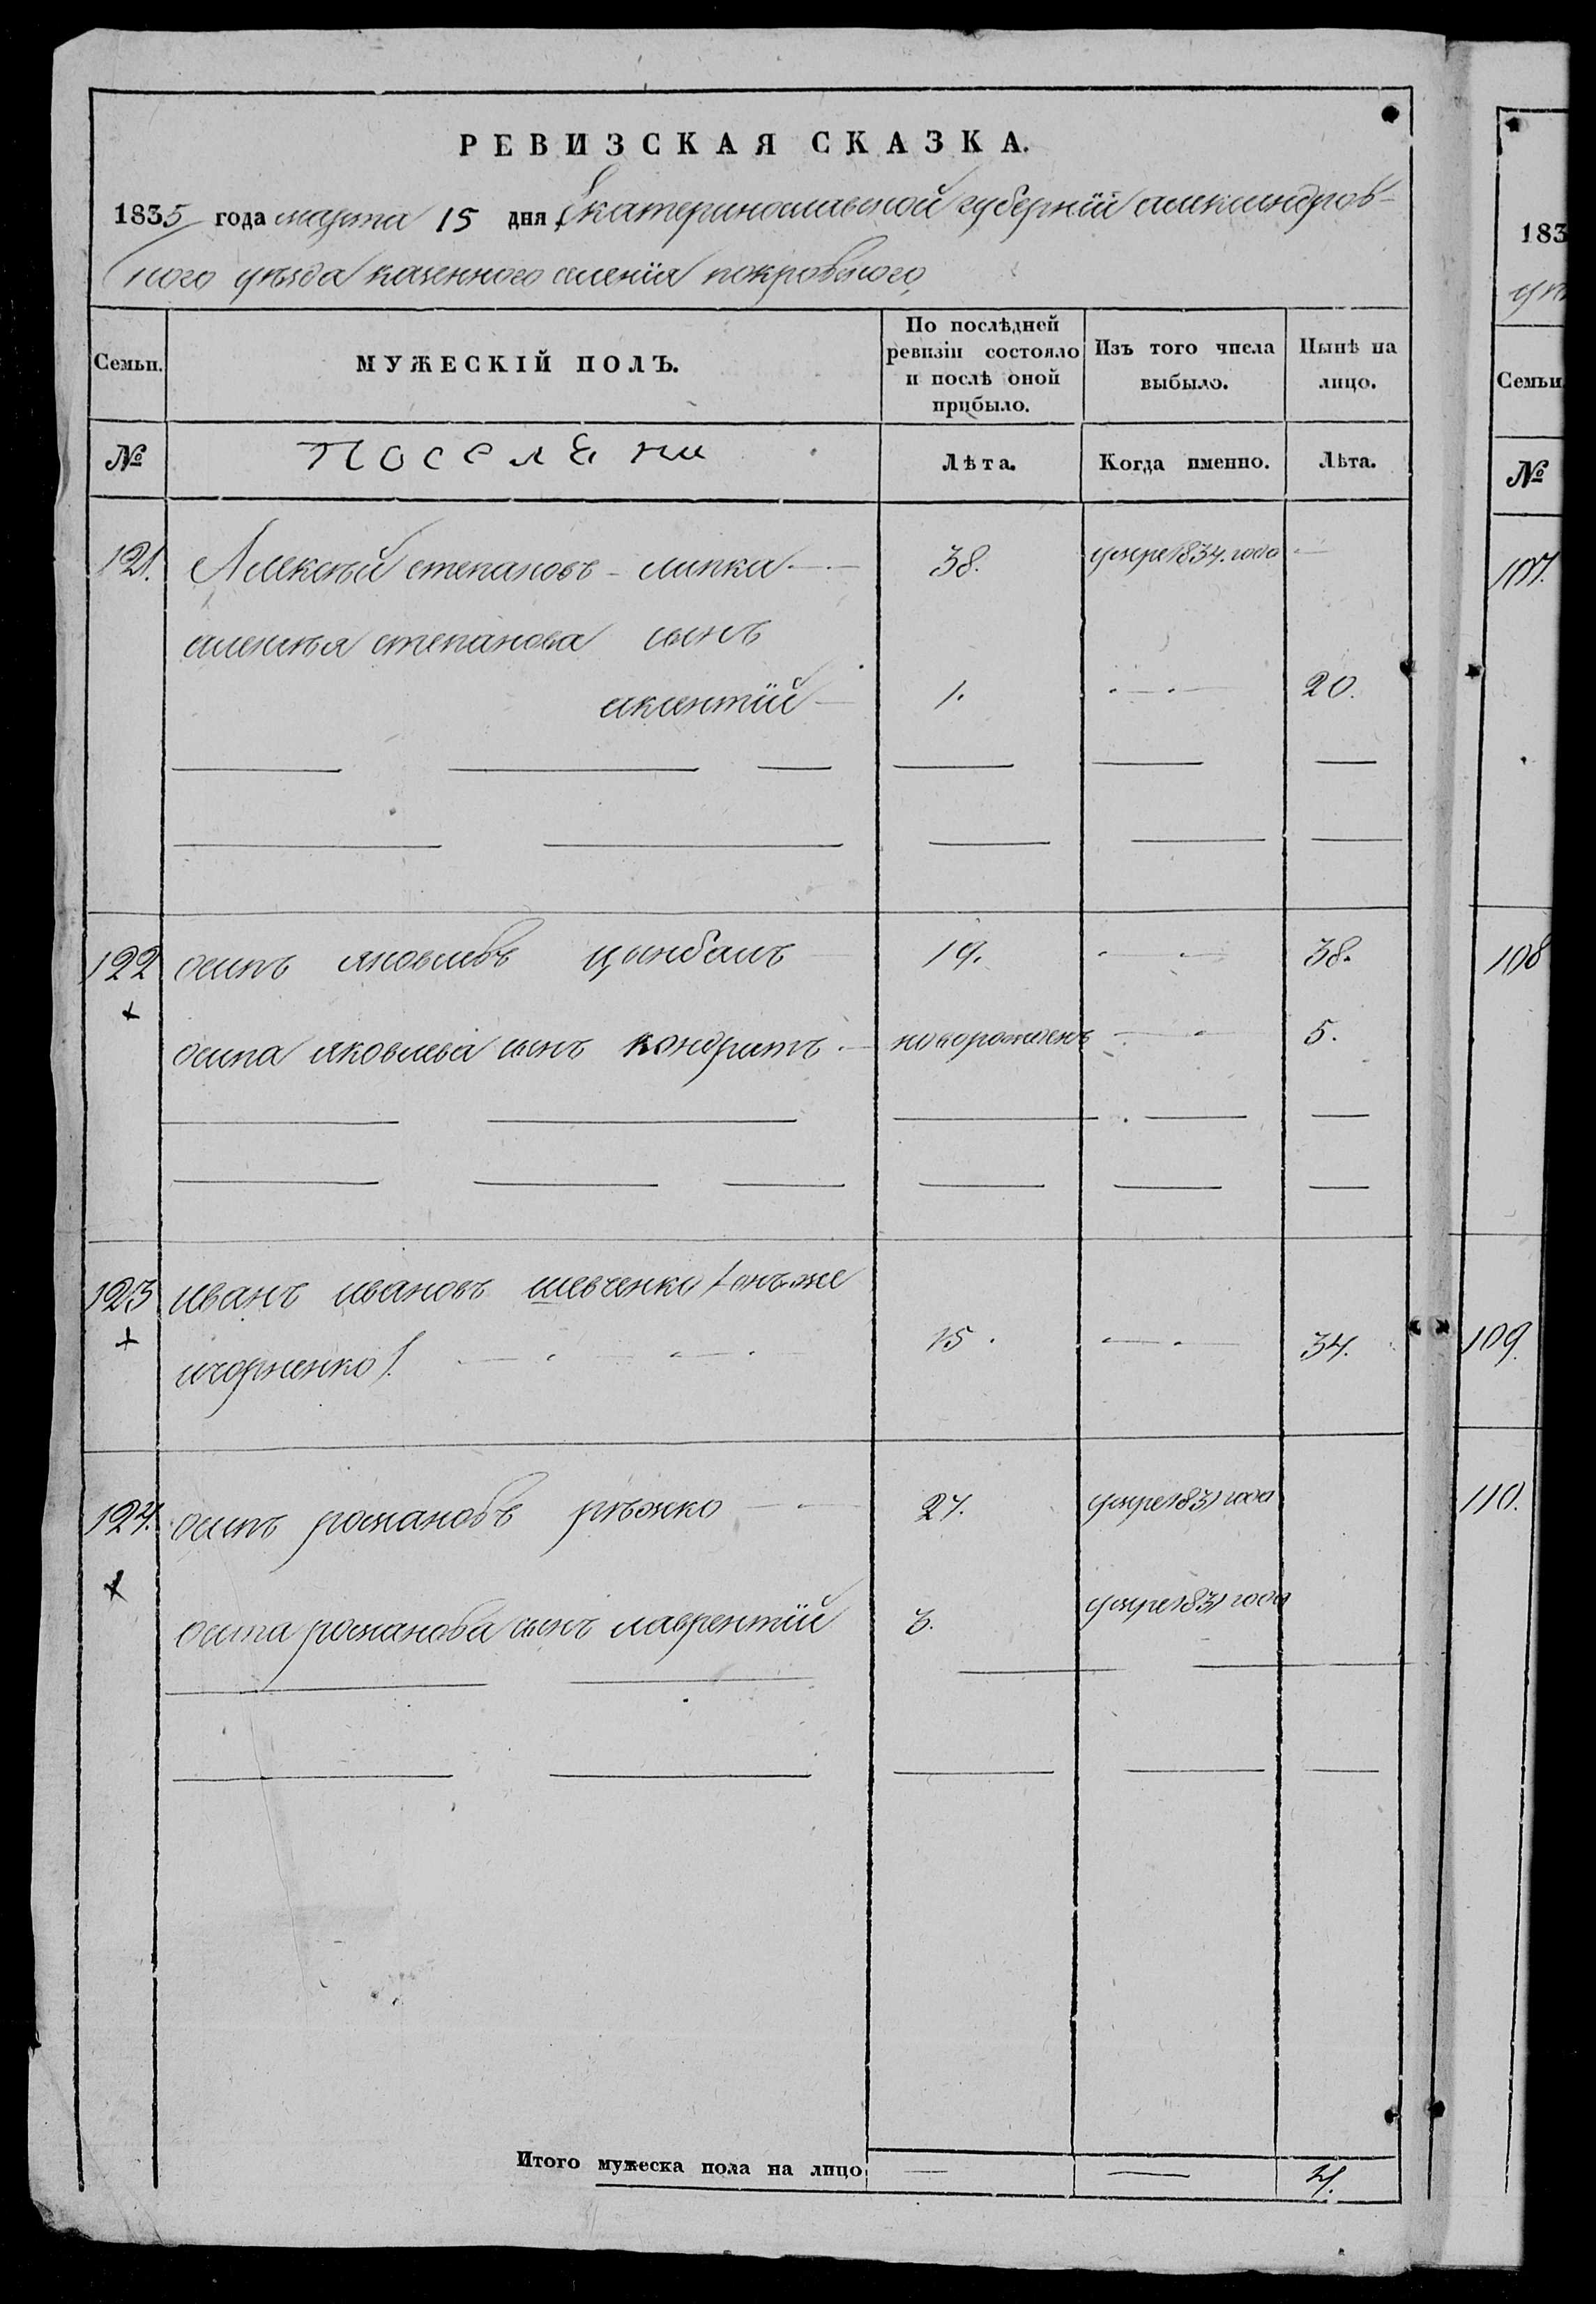 РЕВИЗСКАЯ СКАЗКА.
1835 года марта 15 дня Екатеринославской губернїи александров-
ского уѣзда казенного селенїя покровского
Семьи.
МУЖЕСКІЙ ПОЛЪ.
По послѣдней ревизіи состояло и послѣ оной прибыло.
Изъ того числа выбыло.
Нынѣ на лицо.
№
Поселяни
Лѣта.
Когда именно.
Лѣта.
121. Алексѣй степановъ - липка 38. умре 1834. года
алексѣя степанова сынъ
аксентїй 1. 20.
122 осипъ яковлевъ цынбалъ 19. 38.
осипа яковлева сынъ кондратъ новорожденъ 5.
123 иванъ ивановъ шевченко / онъ же
15. 34.
124. осипъ романовъ рѣжко 27. умре 1831 года
осипа романова сынъ лаврентїй 3. умре 1831 года
Итого мужеска пола на лицо 4.
183
Семьи
№
107.
108
109.
110.